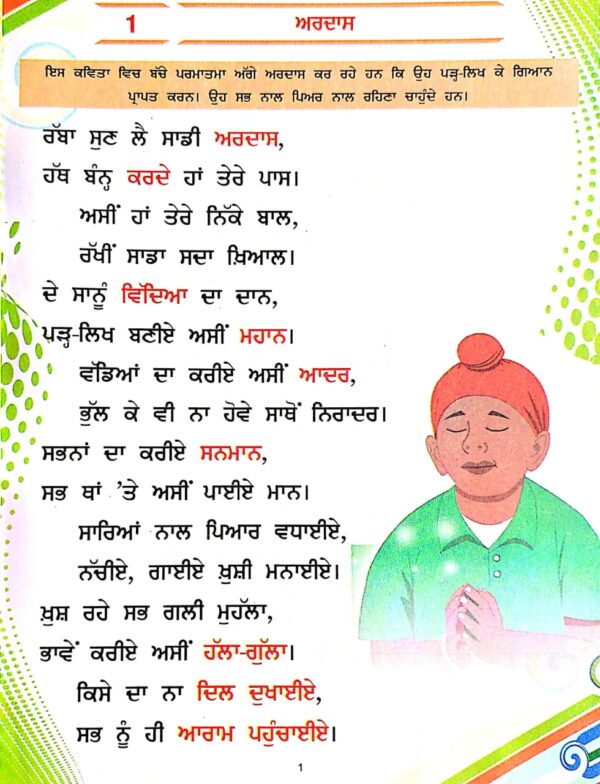 1
ਅਰਦਾਸ
ਇਸ ਕਵਿਤਾ ਵਿਚ ਬੱਚੇ ਪਰਮਾਤਮਾ ਅੱਗੇ ਅਰਦਾਸ ਕਰ ਰਹੇ ਹਨ ਕਿ ਉਹ ਪੜ੍ਹ-ਲਿਖ ਕੇ ਗਿਆਨ
ਪ੍ਰਾਪਤ ਕਰਨ। ਉਹ ਸਭ ਨਾਲ ਪਿਆਰ ਨਾਲ ਰਹਿਣਾ ਚਾਹੁੰਦੇ ਹਨ।
ਰੱਬਾ ਸੁਣ ਲੈ ਸਾਡੀ ਅਰਦਾਸ,
ਹੱਥ ਬੰਨ੍ਹ ਕਰਦੇ ਹਾਂ ਤੇਰੇ ਪਾਸ।
ਅਸੀਂ ਹਾਂ ਤੇਰੇ ਨਿੱਕੇ ਬਾਲ,
ਰੱਖੀਂ ਸਾਡਾ ਸਦਾ ਖ਼ਿਆਲ।
ਦੇ ਸਾਨੂੰ ਵਿੱਦਿਆ ਦਾ ਦਾਨ,
ਪੜ੍ਹ-ਲਿਖ ਬਣੀਏ ਅਸੀਂ ਮਹਾਨ।
ਵੱਡਿਆਂ ਦਾ ਕਰੀਏ ਅਸੀਂ ਆਦਰ,
ਭੁੱਲ ਕੇ ਵੀ ਨਾ ਹੋਵੇ ਸਾਥੋਂ ਨਿਰਾਦਰ।
ਸਭਨਾਂ ਦਾ ਕਰੀਏ ਸਨਮਾਨ,
ਸਭ ਥਾਂ 'ਤੇ ਅਸੀਂ ਪਾਈਏ ਮਾਨ।
ਸਾਰਿਆਂ ਨਾਲ ਪਿਆਰ ਵਧਾਈਏ,
ਨੱਚੀਏ, ਗਾਈਏ ਖ਼ੁਸ਼ੀ ਮਨਾਈਏ।
ਖ਼ੁਸ਼ ਰਹੇ ਸਭ ਗਲੀ ਮੁਹੱਲਾ,
ਭਾਵੇਂ ਕਰੀਏ ਅਸੀਂ ਹੱਲਾ-ਗੁੱਲਾ।
ਕਿਸੇ ਦਾ ਨਾ ਦਿਲ ਦੁਖਾਈਏ,
ਸਭ ਨੂੰ ਹੀ ਆਰਾਮ ਪਹੁੰਚਾਈਏ।
1